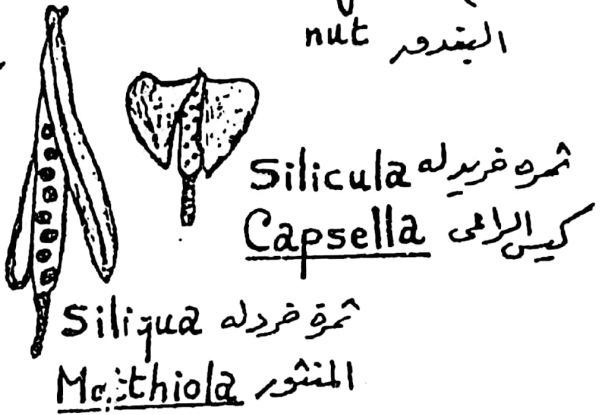 nut البندق
Silicula ثمرة خريدله
Capsella كيس الراعى
Siliqua ثمرة خردله
Matthiola المنثور